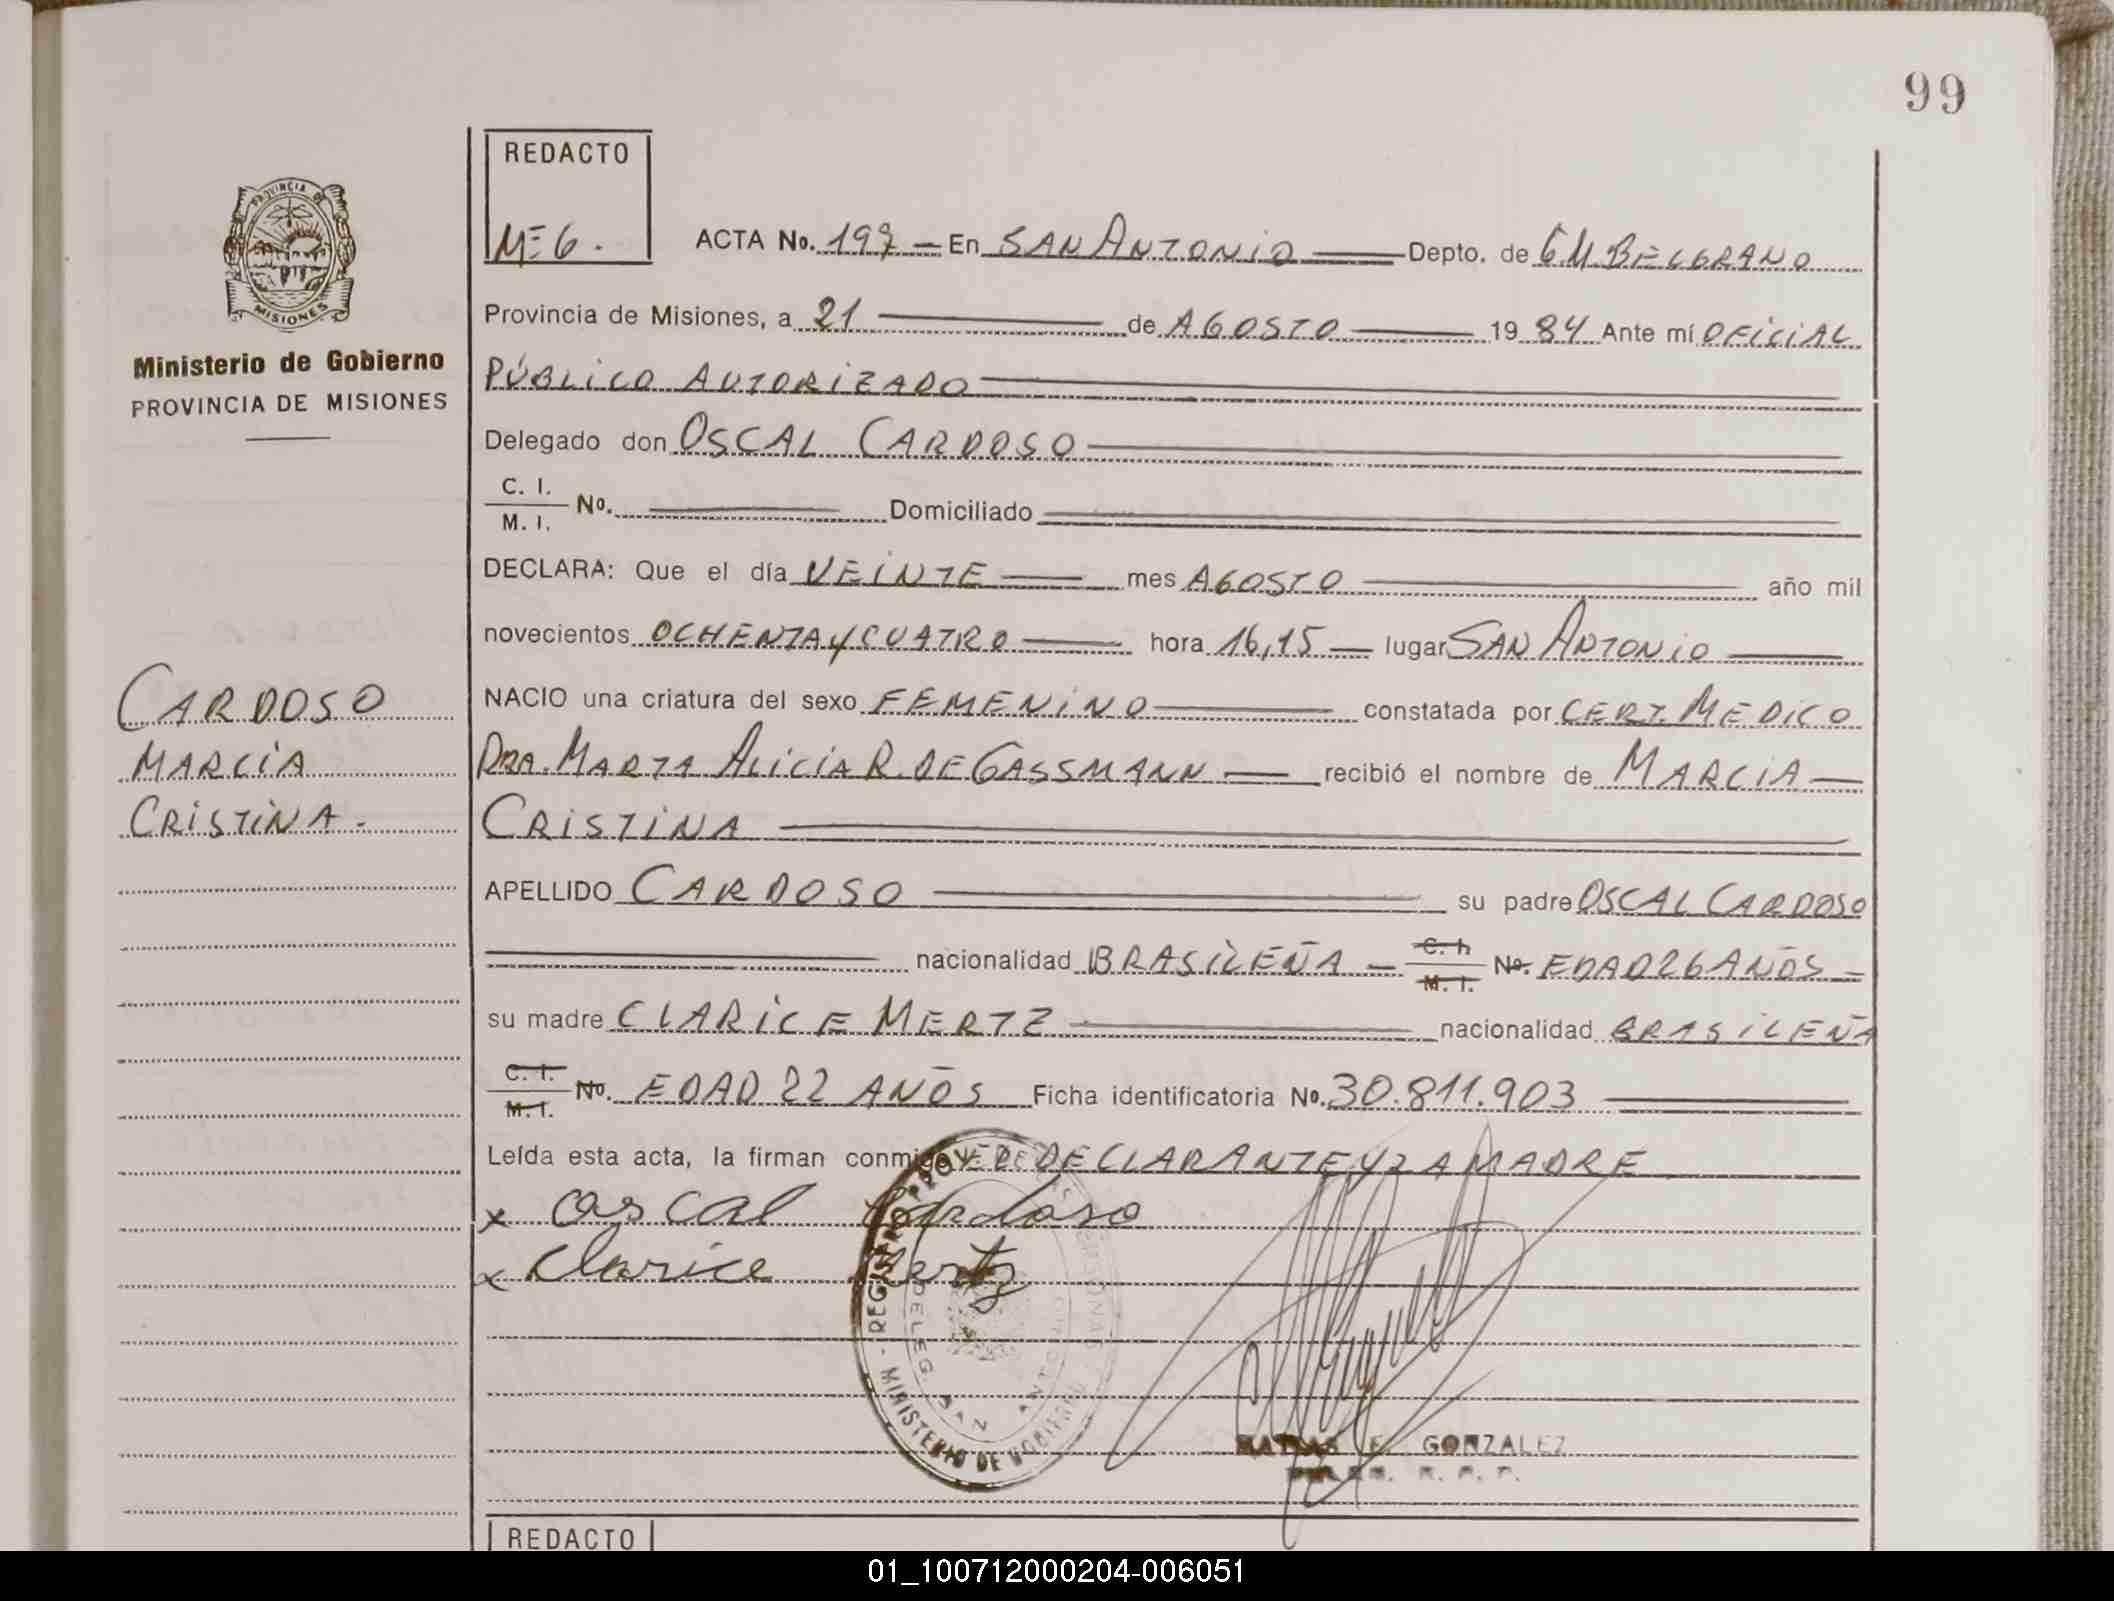 99
REDACTO
ME G.
PROVINCIA DE
MISIONES
Ministerio de Gobierno
PROVINCIA DE MISIONES
ACTA No. 197 — En SAN ANTONIO — Depto. de G M BELGRANO
Provincia de Misiones, a 21 — de AGOSTO — 19 84 Ante mí OFICIAL
PÚBLICO AUTORIZADO
Delegado don OSCAL CARDOSO
C. I.
M. I. No. — Domiciliado —
DECLARA: Que el día VEINTE — mes AGOSTO — año mil
novecientos OCHENTA Y CUATRO — hora 16,15 — lugar SAN ANTONIO —
NACIO una criatura del sexo FEMENINO — constatada por CERT. MEDICO
DRA. MARTA ALICIA R. DE GASSMANN — recibió el nombre de MARCIA —
CRISTINA —
APELLIDO CARDOSO — su padre OSCAL CARDOSO
— nacionalidad BRASILEÑA — C. I. M. I. No. EDAD 26 AÑOS —
su madre CLARICE MERTZ — nacionalidad BRASILEÑA
C. I. M. I. No. EDAD 22 AÑOS Ficha identificatoria No. 30.811.903 —
Leída esta acta, la firman conmigo EL DECLARANTE Y LA MADRE
x Oscal Cardoso
x Clarice Mertz
CARDOSO
MARCIA
CRISTINA.
REGISTRO PROV. DE LAS PERSONAS
DELEG. SAN ANTONIO
MINISTERIO DE GOBIERNO
GONZALEZ
REDACTO
01_100712000204-006051